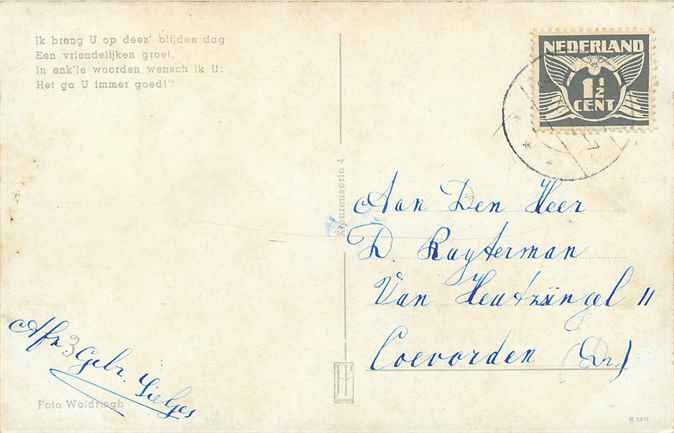 Ik breng U op deez' blijden dag
Een vriendelijken groet,
In enk'le woorden wensch ik U:
Het ga U immer goed!"
NEDERLAND
1½
CENT
Kleurenserie 4
Aan Den Heer
D. Ruyterman
Van Heutzsingel 11
Coevorden (Dr)
Afz
3
Gebr.
Foto Waldriagh
H